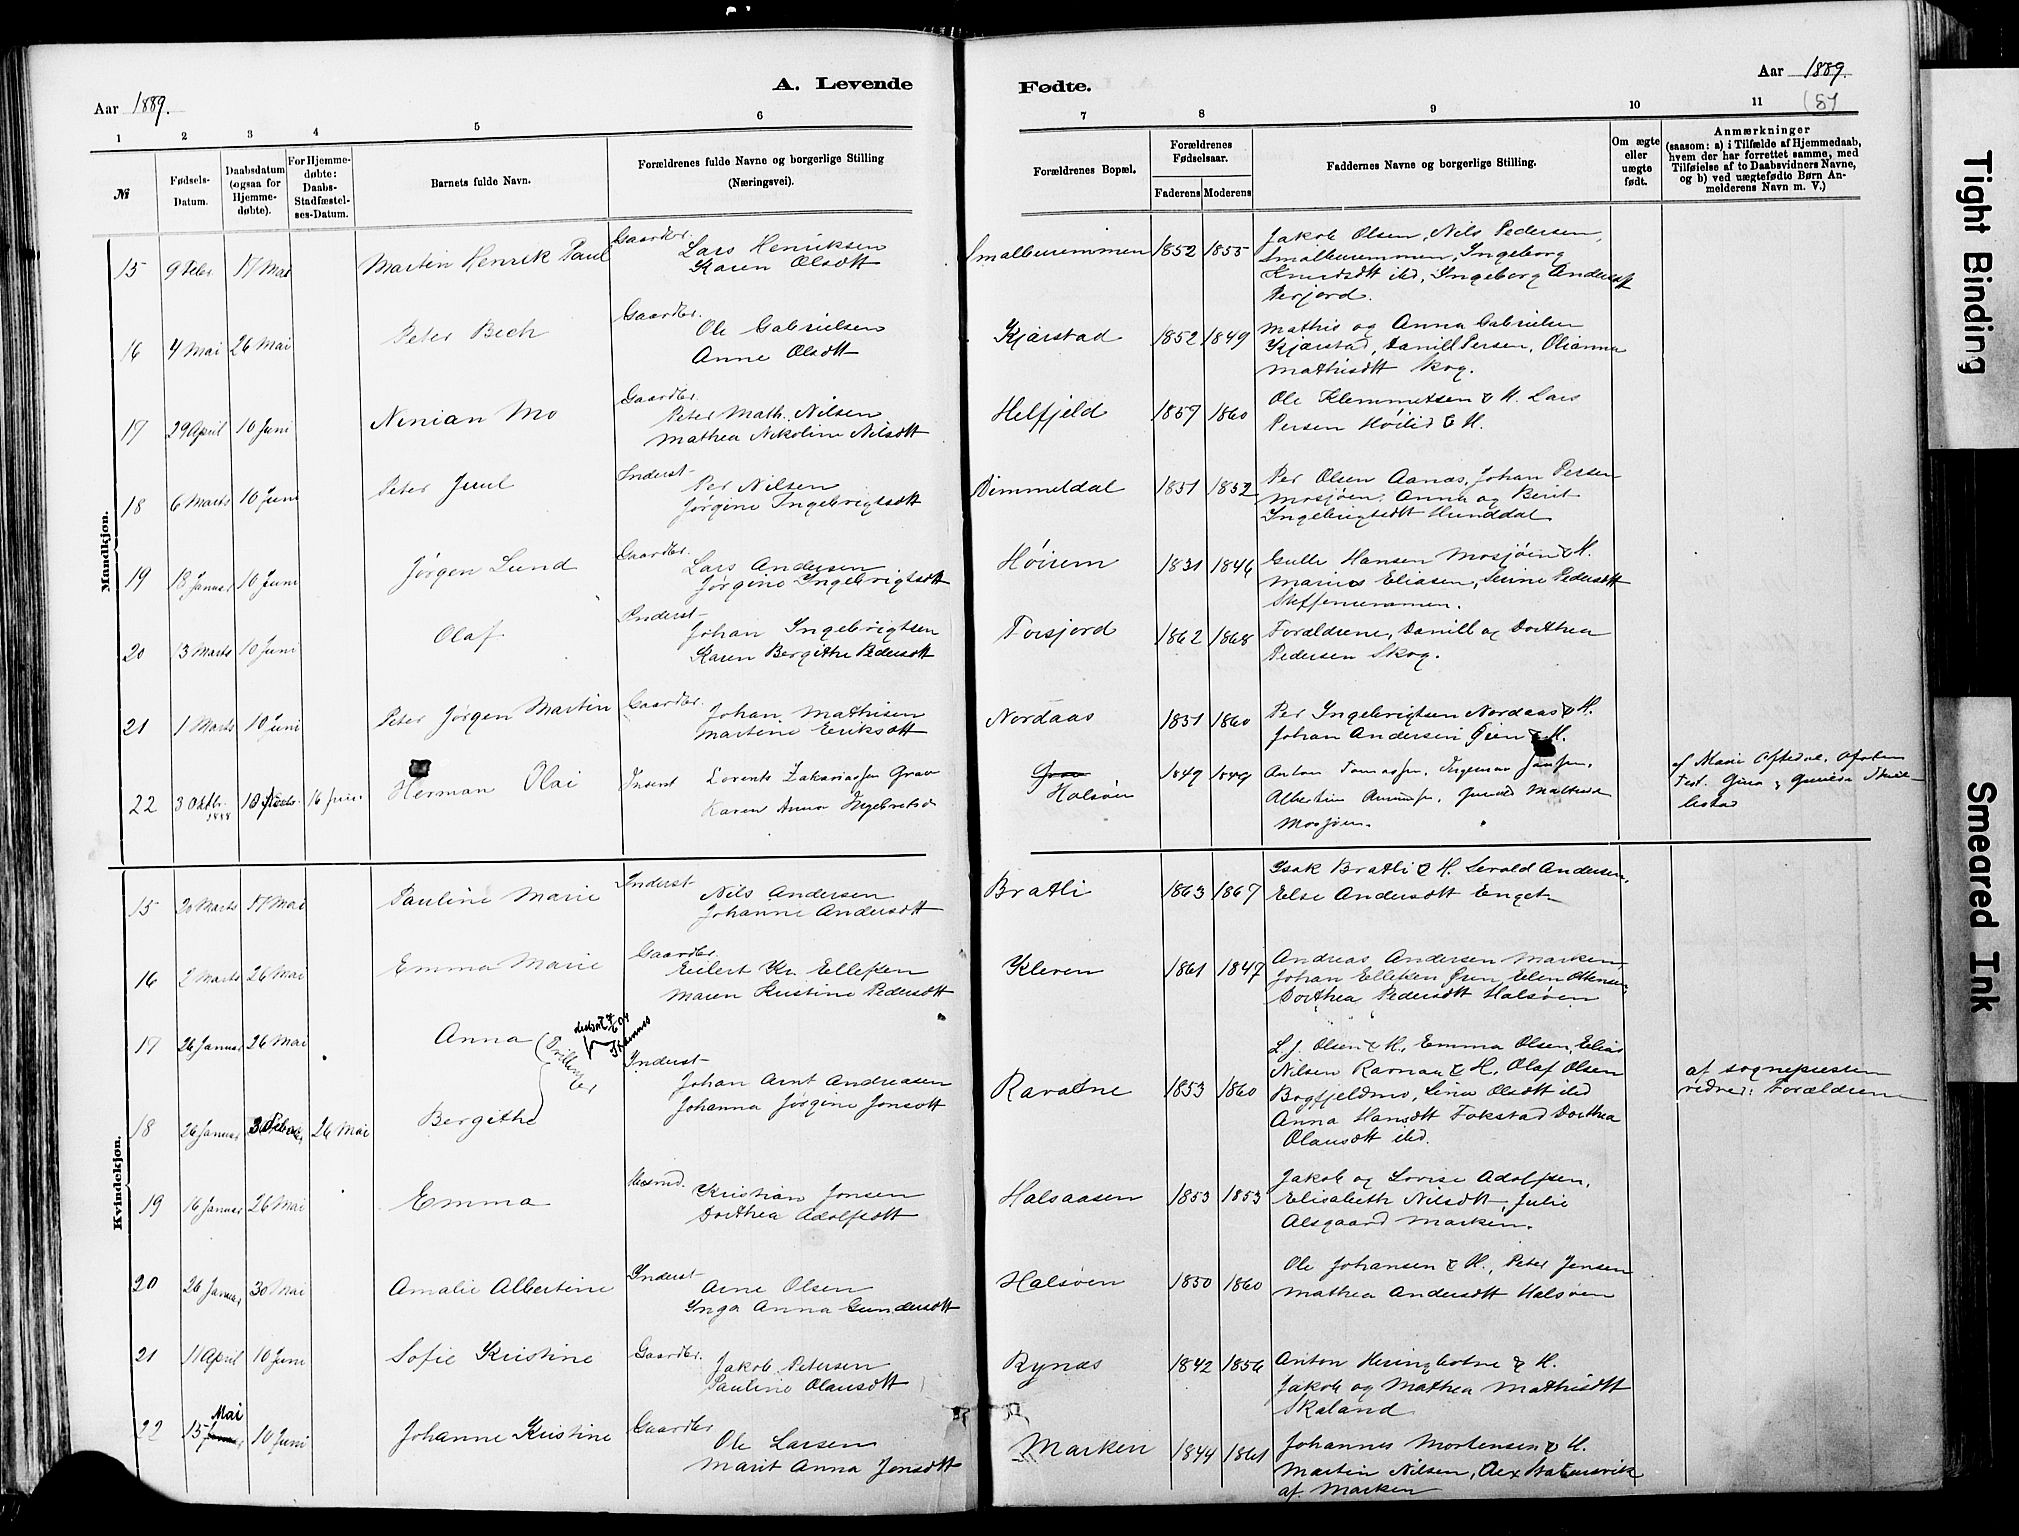 Aar 1889.
A. Levende
Fødte.
Aar 1889.
(8)
1 2 3 4 5 6 7 8 9 10 11
№
Fødsels-Datum.
Daabsdatum (ogsaa for Hjemme-døbte).
For Hjemme-døbte: Daabs-Stadfæstel-ses-Datum.
Barnets fulde Navn.
Forældrenes fulde Navne og borgerlige Stilling (Næringsvei).
Forældrenes Bopæl.
Forældrenes Fødselsaar.
Faderens Moderens
Faddernes Navne og borgerlige Stilling.
Om ægte eller uægte født.
Anmærkninger
(saasom: a) i Tilfælde af Hjemmedaab, hvem der har forrettet samme, med Tilføielse af to Daabsvidners Navne, og b) ved uægtefødte Børn An-melderens Navn m. V.)
Mandkjøn.
15 9 Febr 17 Mai Martin Henrik Paul Gaardbr. Lars Henriksen
Karen Olsdtt
Smalburemmen 1852 1855 Jakob Olsen, Nils Pedersen,
Smalburemmen, Ingeborg
Knudsdtt ibd, Ingeborg Andersdtt
16 4 Mai 26 Mai Peter Bech Gaardbr. Ole Gabrielsen
Anne Olsdtt
Kjærstad 1852 1849 Mathis og Anna Gabrielsen
Kjærstad, Daniel Persen, Olianna
Mathisdtt Skog.
17 29 April 10 Juni Ninian Mo Gaardbr. Peter Math. Nilsen
Mathea Nikoline Nilsdtt
Helfjeld 1859 1860 Ole Klemmetsen & H. Lars
Persen Høilid & H.
18 6 Marts 10 Juni Peter Juul Inderst Per Nilsen
Jørgine Ingebrigtsdtt
Dimmeldal 1851 1852 Per Olsen Aanæs, Johan Persen
Mosjøen, Anna og Berit
Ingebrigtsdtt Hunddal
19 18 Januar 10 Juni Jørgen Lund Gaardbr. Lars Andersen
Jørgine Ingebrigtsdtt
1831 1846 Hansen Mosjøen & H.
Marius Eliasen, Pedersdtt
20 13 Marts 10 Juni Olaf Inderst Johan Ingebrigtsen
Karen Bergithe Pedersdtt
Forsjord 1862 1868 Forældrene, Daniel og Dorthea
Pedersen Skog.
21 1 Marts 10 Juni Peter Jørgen Martin Gaardbr. Johan Mathisen
Martine Eriksdtt
Nordaas 1851 1860 Per Ingebrigtsen Nordaas & H.
Johan Andersen Øien & H.
22 3 Oktbr. 1888 16 Juni Herman Olai Lorents Zakariassen Grav
Karen Anna Ingebretsd
Grav
Halsøen 1849 1849 Anton
Albertine
Mosjøen.
af Marie
Test. Gina &
Kvindekjøn.
15 20 Marts 17 Mai Pauline Marie Inderst Nils Andersen
Johanne Andersdtt
Bratli 1863 1867 Isak Bratli & H. Andersen,
Else Andersdtt Enget
16 2 Marts 26 Mai Emma Marie Gaardbr. Eilert Kr. Ellefsen
Maren Kristine Pedersdtt
Kleven 1861 1847 Andreas Andersen Marken,
Johan Ellefsen Øren, Ottensen
Dorthea Pedersdtt Halsøen
17 26 Januar 26 Mai Anna
Inderst Johan Arnt Andreasen
Johanna Jørgine Jonsdtt
1853 1860 L. J. Olsen & H, Emma Olsen, Elias
Nilsen & H, Olaf Olsen
Bogfjeldmo, Lina Olsdtt ibd
Anna Hansdtt Dorthea
Olausdtt ibd.
af sognepresten
vidner: Forældrene
18 26 Januar 26 Mai Bergithe
19 16 Januar 26 Mai Emma Kristian Jonsen
Dorthea Adolfsdtt
Halsaasen 1853 1853 Jakob og Lovise Adolfsen,
Elisabeth Nilsdtt, Julie
Alsgaard Marken.
20 26 Januar 30 Mai Amalie Albertine Inderst Arne Olsen
Inga Anna Gundersdtt
Halsøen 1850 1860 Ole Johansen & H., Peter Jensen
Mathea Andersdtt Halsøen
21 11 April 10 Juni Sofie Kristine Gaardbr. Jakob Petersen
Pauline Olausdtt
Rynæs 1842 1856 Anton & H.
Jakob og Mathea Mathisdtt
Skaland
22 15 Mai 10 Juni Johanne Kristine Gaardbr Ole Larsen
Marit Anna Jonsdtt
Marken 1844 1861 Johannes Mortensen & H.
Martin Nilsen,
af Marken
Tight Binding
Smeared Ink